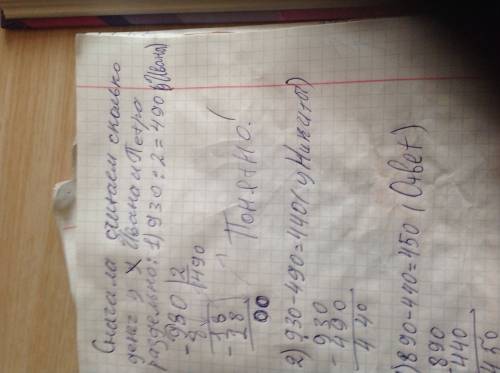 Сначала считаем сколько
денег у Ивана и Петра
раздельно: 1) 930 : 2 = 490 (у Ивана)
930 | 2
- 8 | 490
18
- 18
00
Понятно!
2) 930 - 490 = 440 (у Никиты)
- 930
490
440
890 - 440 = 450 (Ответ)
- 890
440
450